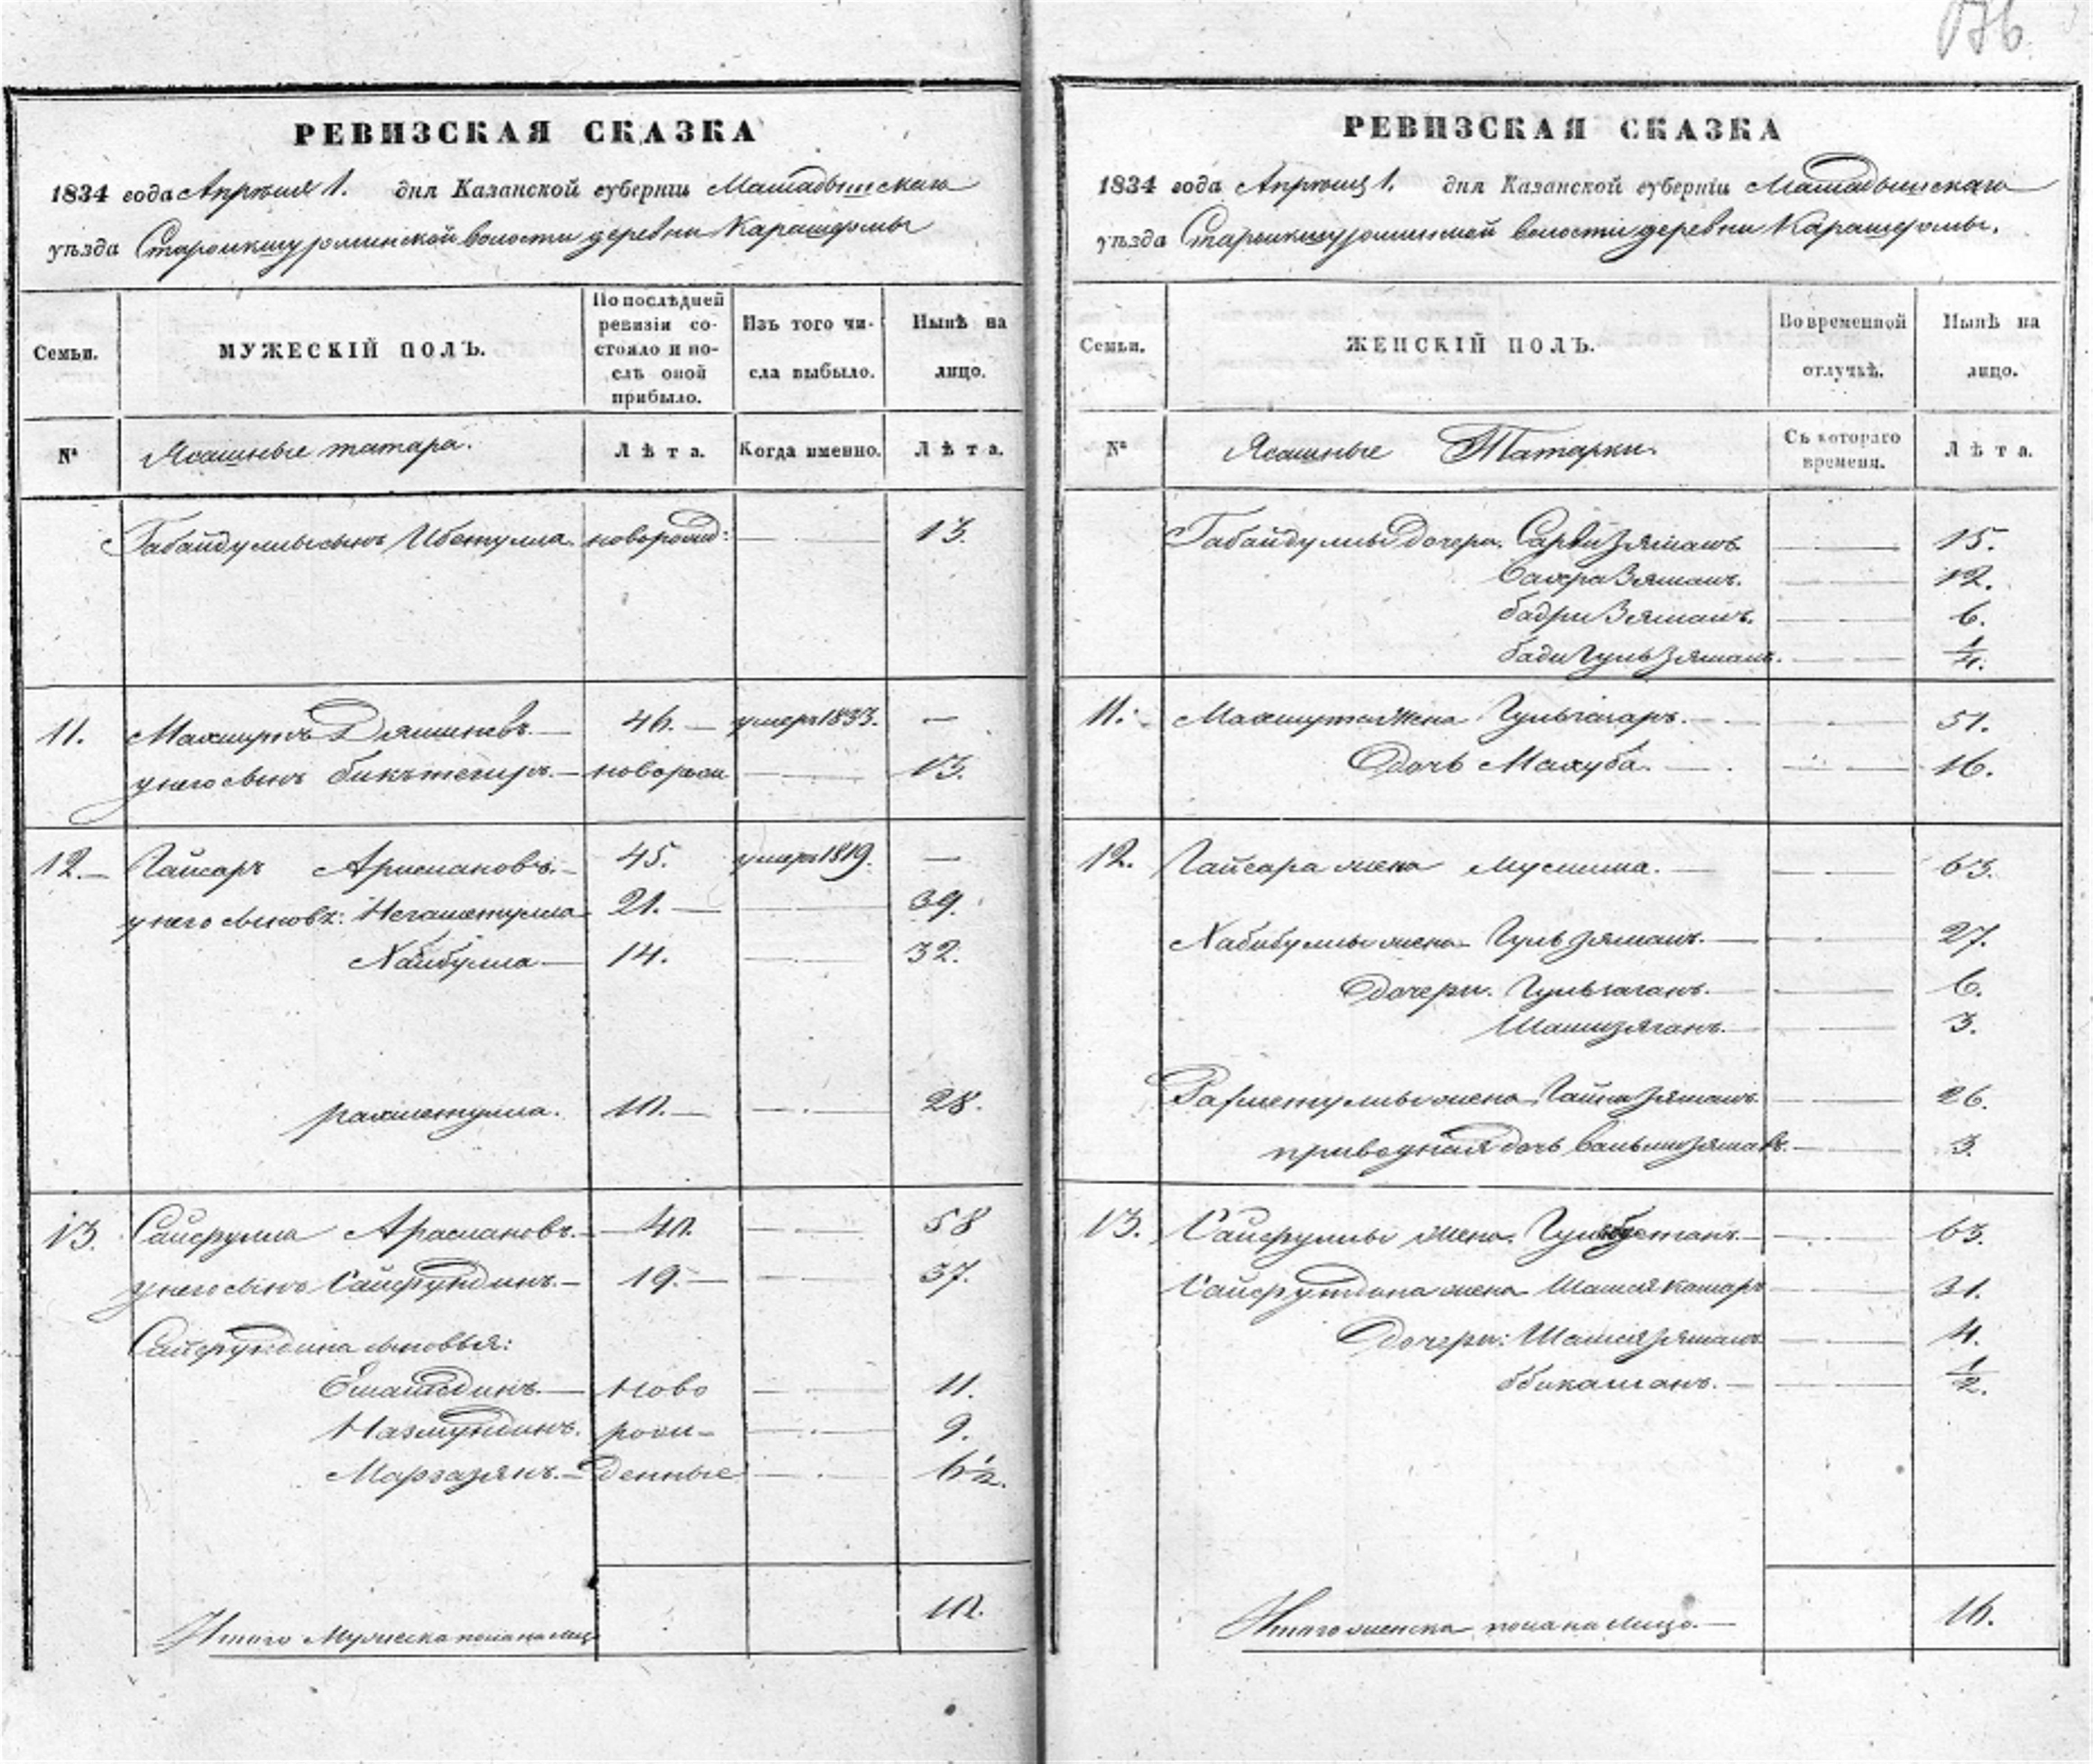 176
РЕВИЗСКАЯ СКАЗКА
1834 года Апрѣля 1. дня Казанской губерніи Мамадышскаго
уѣзда Староикшурминской волости деревни Карашурмы
Семьи.
МУЖЕСКІЙ ПОЛЪ.
По послѣдней ревизіи со-
стояло и по-
слѣ оной
прибыло.
Изъ того чи-
сла выбыло.
Нынѣ на
лицо.
№
Ясашные татара.
Лѣта.
Когда именно.
Лѣта.
Габайдуллы сынъ Ибетулла новорожд: 13.
11. Махмутъ 46. умеръ 1833. —
у него сынъ Бикътемиръ. новорож 13.
12. Гайсаръ Арислановъ. 45. умеръ 1819. —
у него сыновъ: Негаметулла 21. 39.
Хабибулла 14. 32.
Рахметулла. 10. 28.
13. Сайфулла Араслановъ. 40. 58
у него сынъ Сайфутдинъ. 19. 37.
Сайфутдина сыновья:
ново 11.
Назмутдинъ. рож- 9.
Мартазянъ. денные 6 1/2.
Итого Мужеска пола на лицо 10.
РЕВИЗСКАЯ СКАЗКА
1834 года Апрѣля 1. дня Казанской губерніи Мамадышскаго
уѣзда Староикшурминской волости деревни Карашурмы.
Семьи.
ЖЕНСКІЙ ПОЛЪ.
Во временной
отлучкѣ.
Нынѣ на
лицо.
№
Ясашные Татарки.
Съ котораго
времени.
Лѣта.
Габайдуллы дочери. Сарвизямалъ 15.
12.
Бадризямалъ. 6.
Бадигульзямалъ. 1/4.
11. Махмута жена 51.
Дочь Махуба. 16.
12. Гайсара жена Муслима. 63.
Хабибуллы жена Гульзямалъ. 27.
Дочери. 6.
3.
Рахметуллы жена Гайнизямалъ 26.
приводная дочь 3.
13. Сайфуллы жена. Гульбустанъ. 63.
Сайфутдина жена Шамсикамаръ 31.
Дочери: Шамсизямалъ 4.
1/2.
Итого женска пола на лицо. 16.